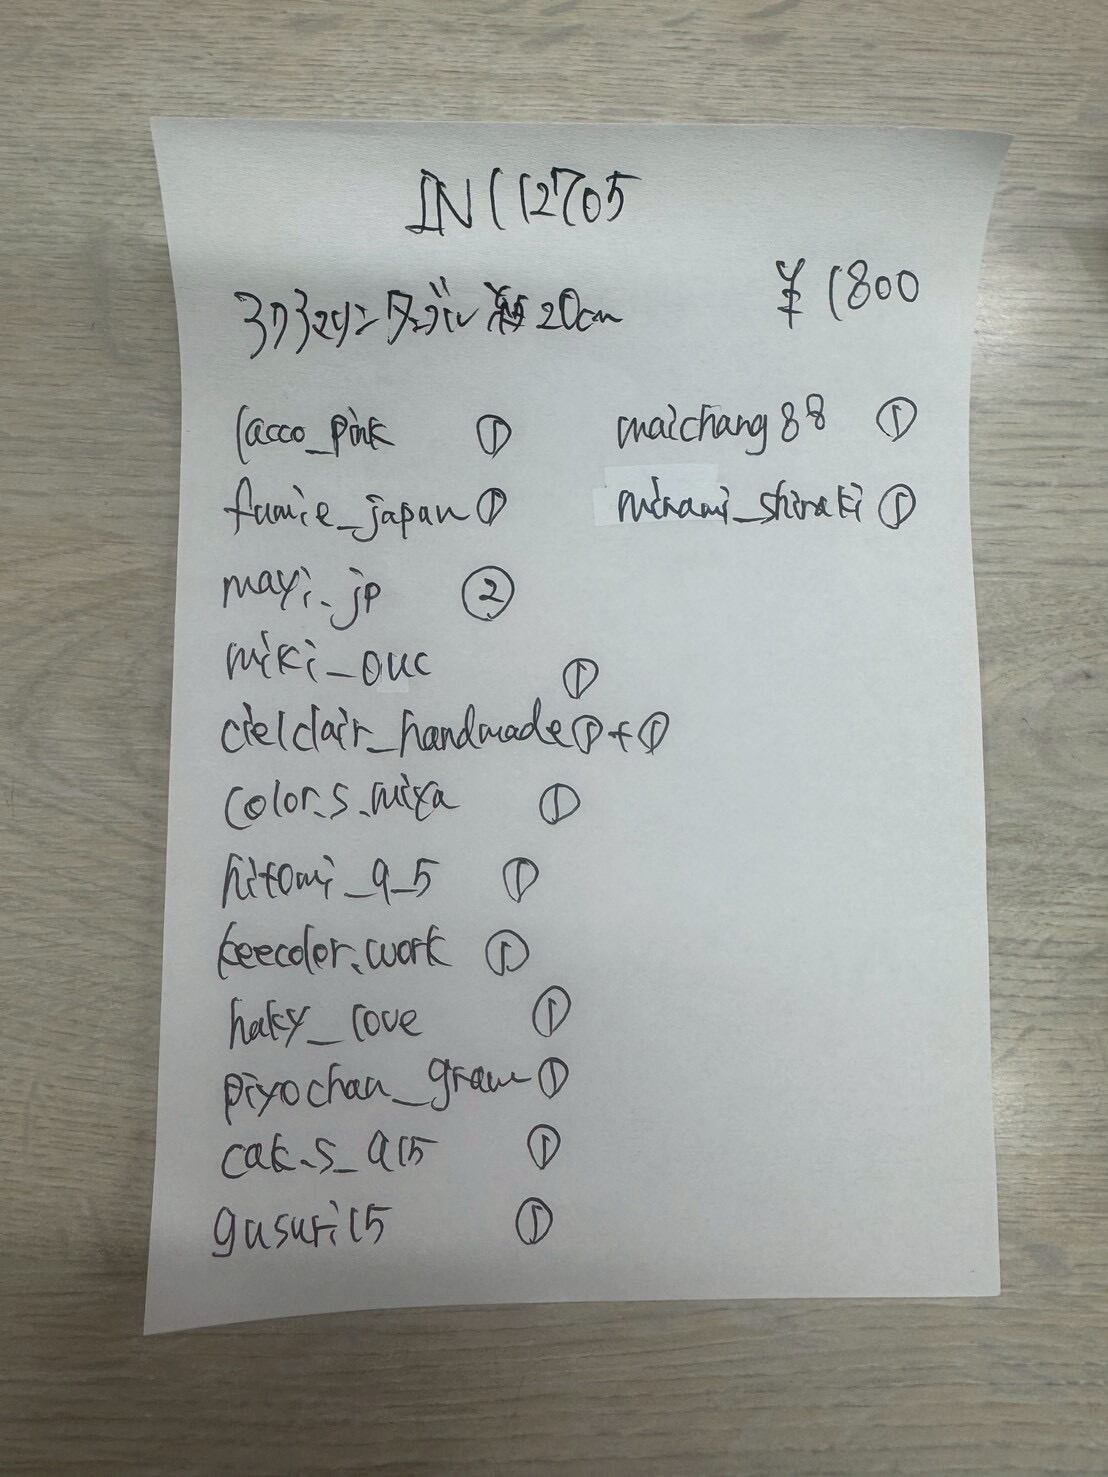 IN112705
アクアマリン タンブル 約20cm
¥1800
lacco_pink ①
fumie_japan ①
mayi_jp ②
miki_ouc ①
cielclair_handmade ①+①
color.s.miya ①
hitomi_9_5 ①
keecolor.work ①
haky_love ①
piyochan_gram ①
cak.s_915 ①
gusuri15 ①
maichang88 ①
minami_shiraki ①